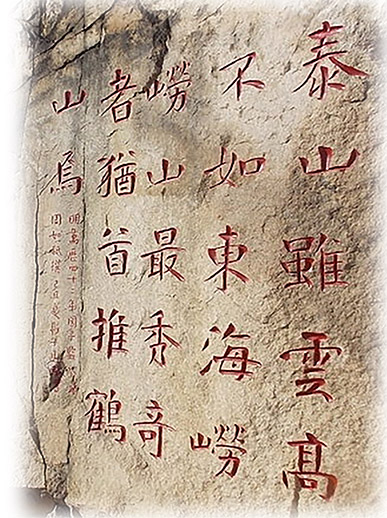 泰山雖雲高
不如東海嶗
嶗山最秀奇
者猶首推鶴
山焉
明萬曆四十年